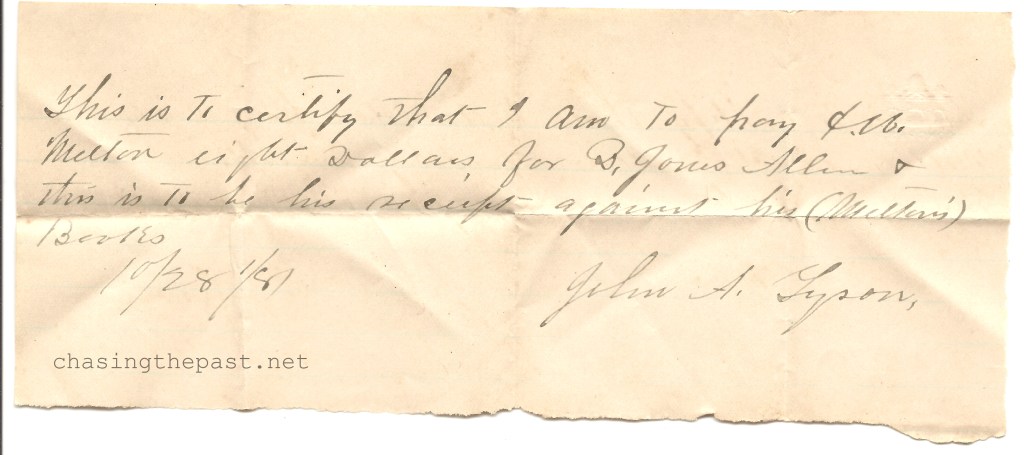 This is to certify that I am to pay
Melton eight Dollars, for B. Jones Allen &
this is to be his receipt against his (Melton's)
Books
10/28/81
John A. Tyson,
chasingthepast.net